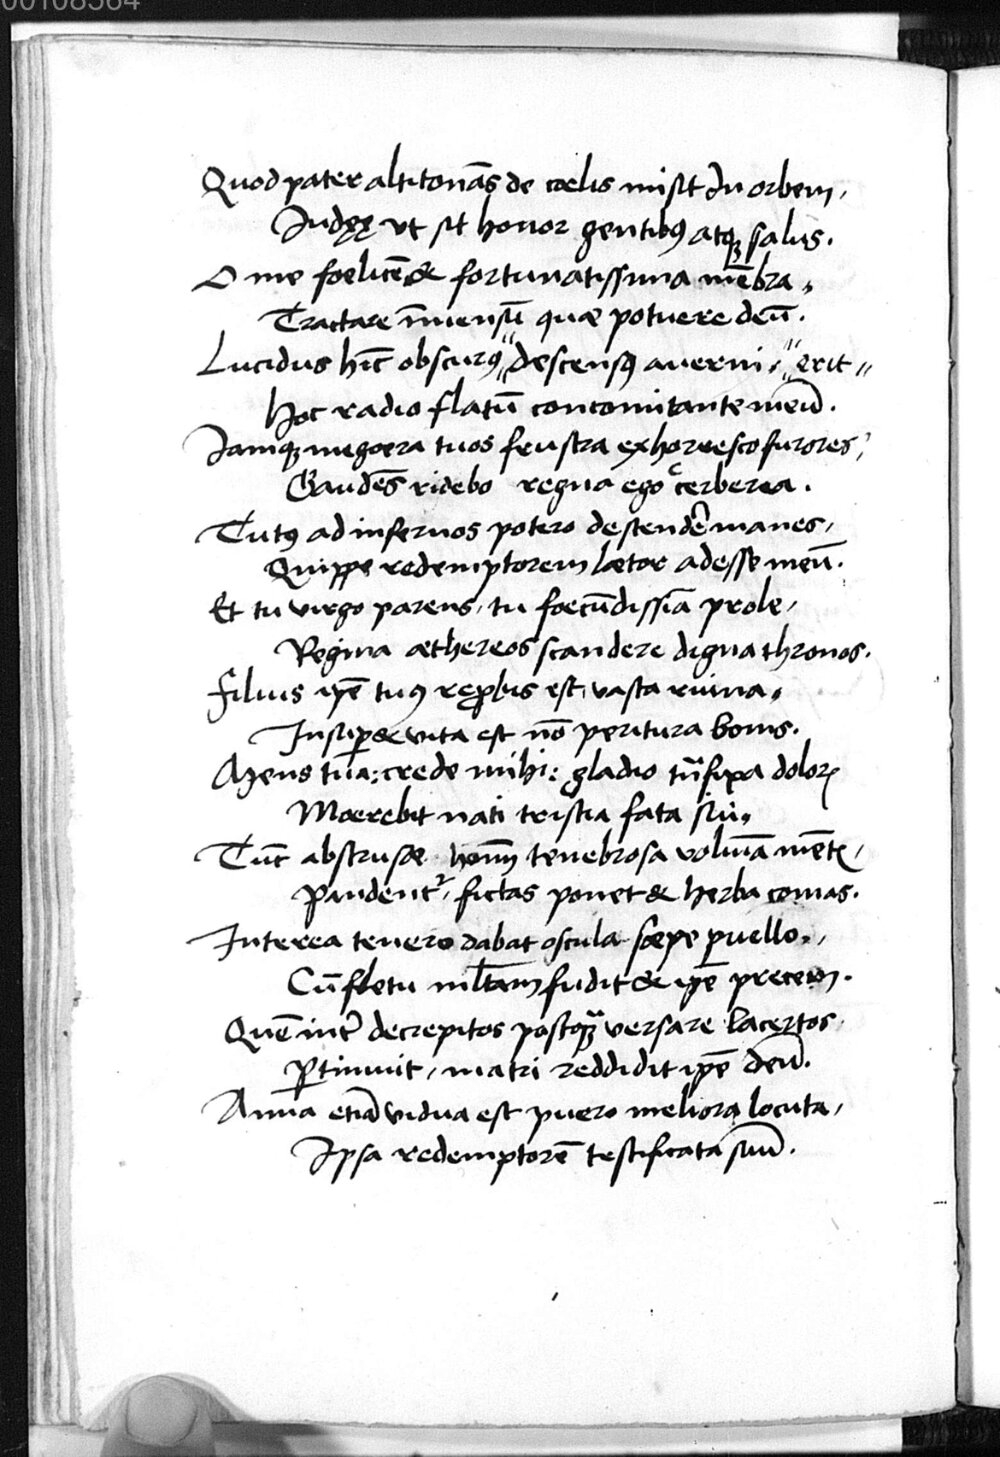 00108364
Quod pater altitonãs de cœlis misit In orbem,
Iudęę vt sit honor gentibꝰ atqꝫ salus.
O me foelicẽ & fortunatissima mẽbra,
Tractare ĩmensũ quæ potuere deũ.
Lucidus hic̃ obscurꝰ " descensꝰ auerni, " erit "
Hoc radio flatũ concomitante meũ.
Iamqꝫ megœra tuos frustra exhorresco furores,
Gaudẽs ridebo regna ego cerberea.
Tutꝰ ad infernos potero descendẽ manes,
Quippe redemptorem lætor adesse meũ.
Et tu virgo parens, tu foecũdissĩa prole,
Regina æthereos scandere digna thronos.
Filius ip̃e tuꝰ reꝓbis est, vasta ruina,
Insuꝑ & vita est nõ peritura bonis.
Mens tua: crede mihi: gladio trñsfixa doloꝝ
Moerebit nati tristia fata sui,
Tũc abstrusæ hoĩm tenebrosa volumĩa mẽtꝭ,
Pandent᷑, fictas ponet & herba comas.
Interea tenero dabat oscula sæpe puello,
Cũ fletu ml̃tam fudit & ip̃e precem.
Quẽ int̉ decrepitos postqꝫ̃ versare lacertos
Ꝑtimuit, matri reddidit ip̃e deũ.
Anna etiã vidua est puero meliora locuta,
Ipsa redemptorẽ testificata suũ.